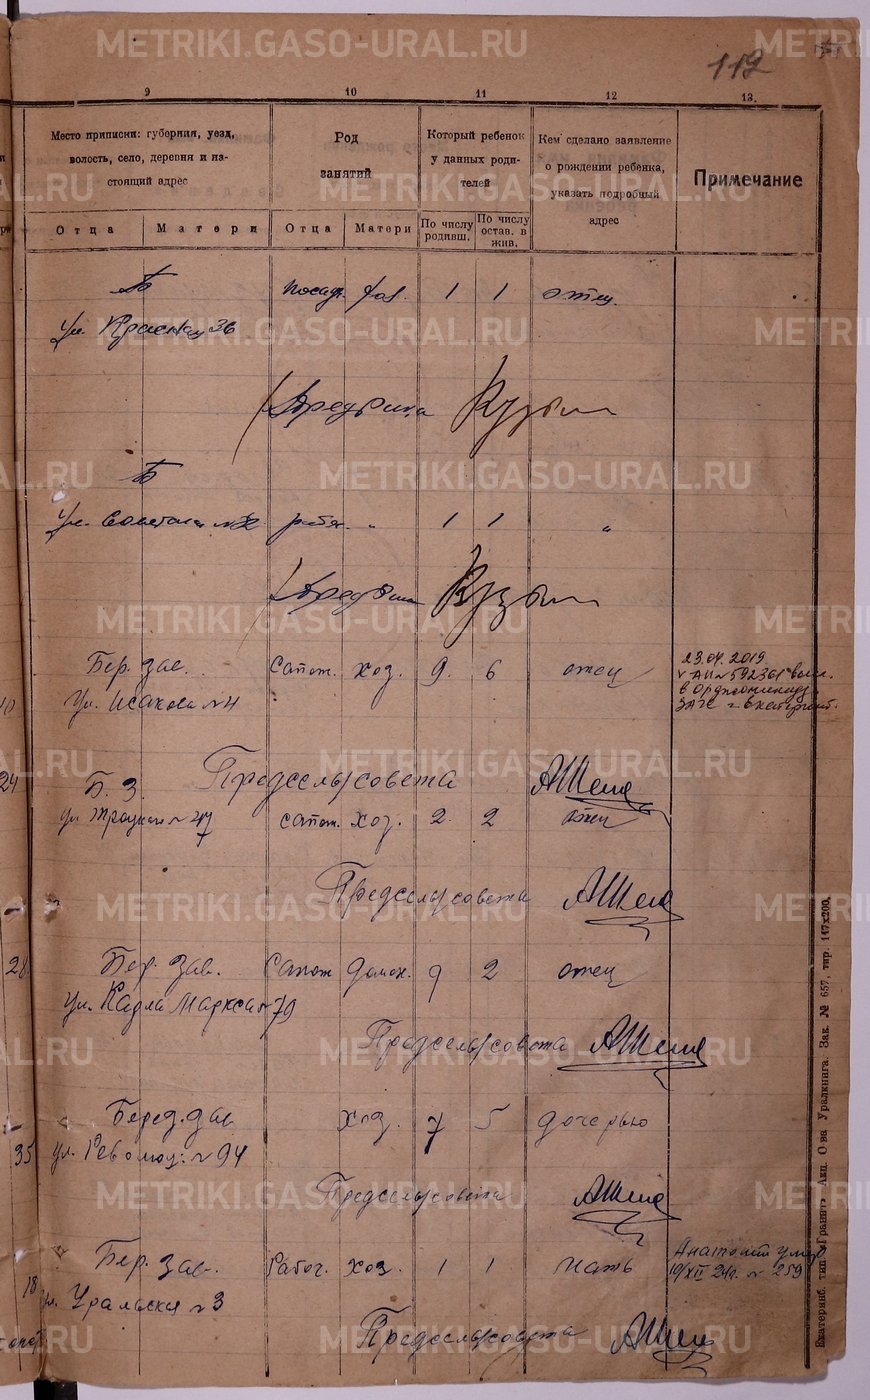 METRIKI.GASO-URAL.RU
112
9 10 11 12 13.
Место приписки: губерния, уезд, волость, село, деревня и настоящий адрес
Род занятий
Который ребенок у данных родителей
Кем сделано заявление о рождении ребенка, указать подробный адрес
Примечание
Отца Матери Отца Матери По числу родивш. По числу остав. в жив.
Б 1 1 отец
ул. Красная 36
Кузьм
Б
ул. Советская рабоч. " 1 1 "
Кузьм
Бер. зав. Сапож. хоз. 9. 6 отец
ул. Исакова № 4
23.04.2019
V-АИ № 592361
в Орджоникид.
ЗАГС г. Екатеринб.
Предсельсовета
Б. З.
ул. Троцкого № 47 сапож. хоз. 2. 2 отец
Предсельсовета
Бер. зав. Сапож домох. 9 2 отец
ул. Карла Маркса № 79
Предсельсовета
Берез. зав. хоз. 7 5 дочерью
ул. Революц. № 94
Предсельсовета
Бер. зав. Рабоч. хоз. 1 1 мать
ул. Уральская № 3
Анатолий умер
19/XII 24г. № 259
Предсельсовета
24
28
35
18
Екатеринб. тип. „Гранит“ Акц. О-ва Уралкнига. Зак. № 657, тир. 147х200.